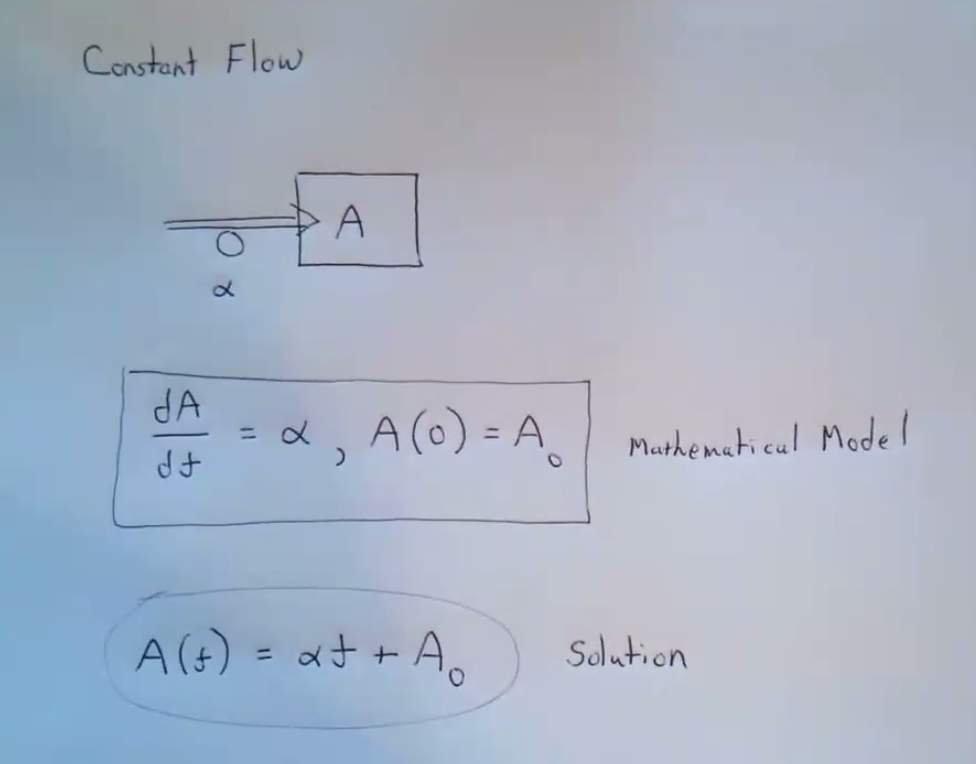 Constant Flow
A
α
dA/dt = α, A(0) = A₀ Mathematical Model
A(t) = αt + A₀ Solution